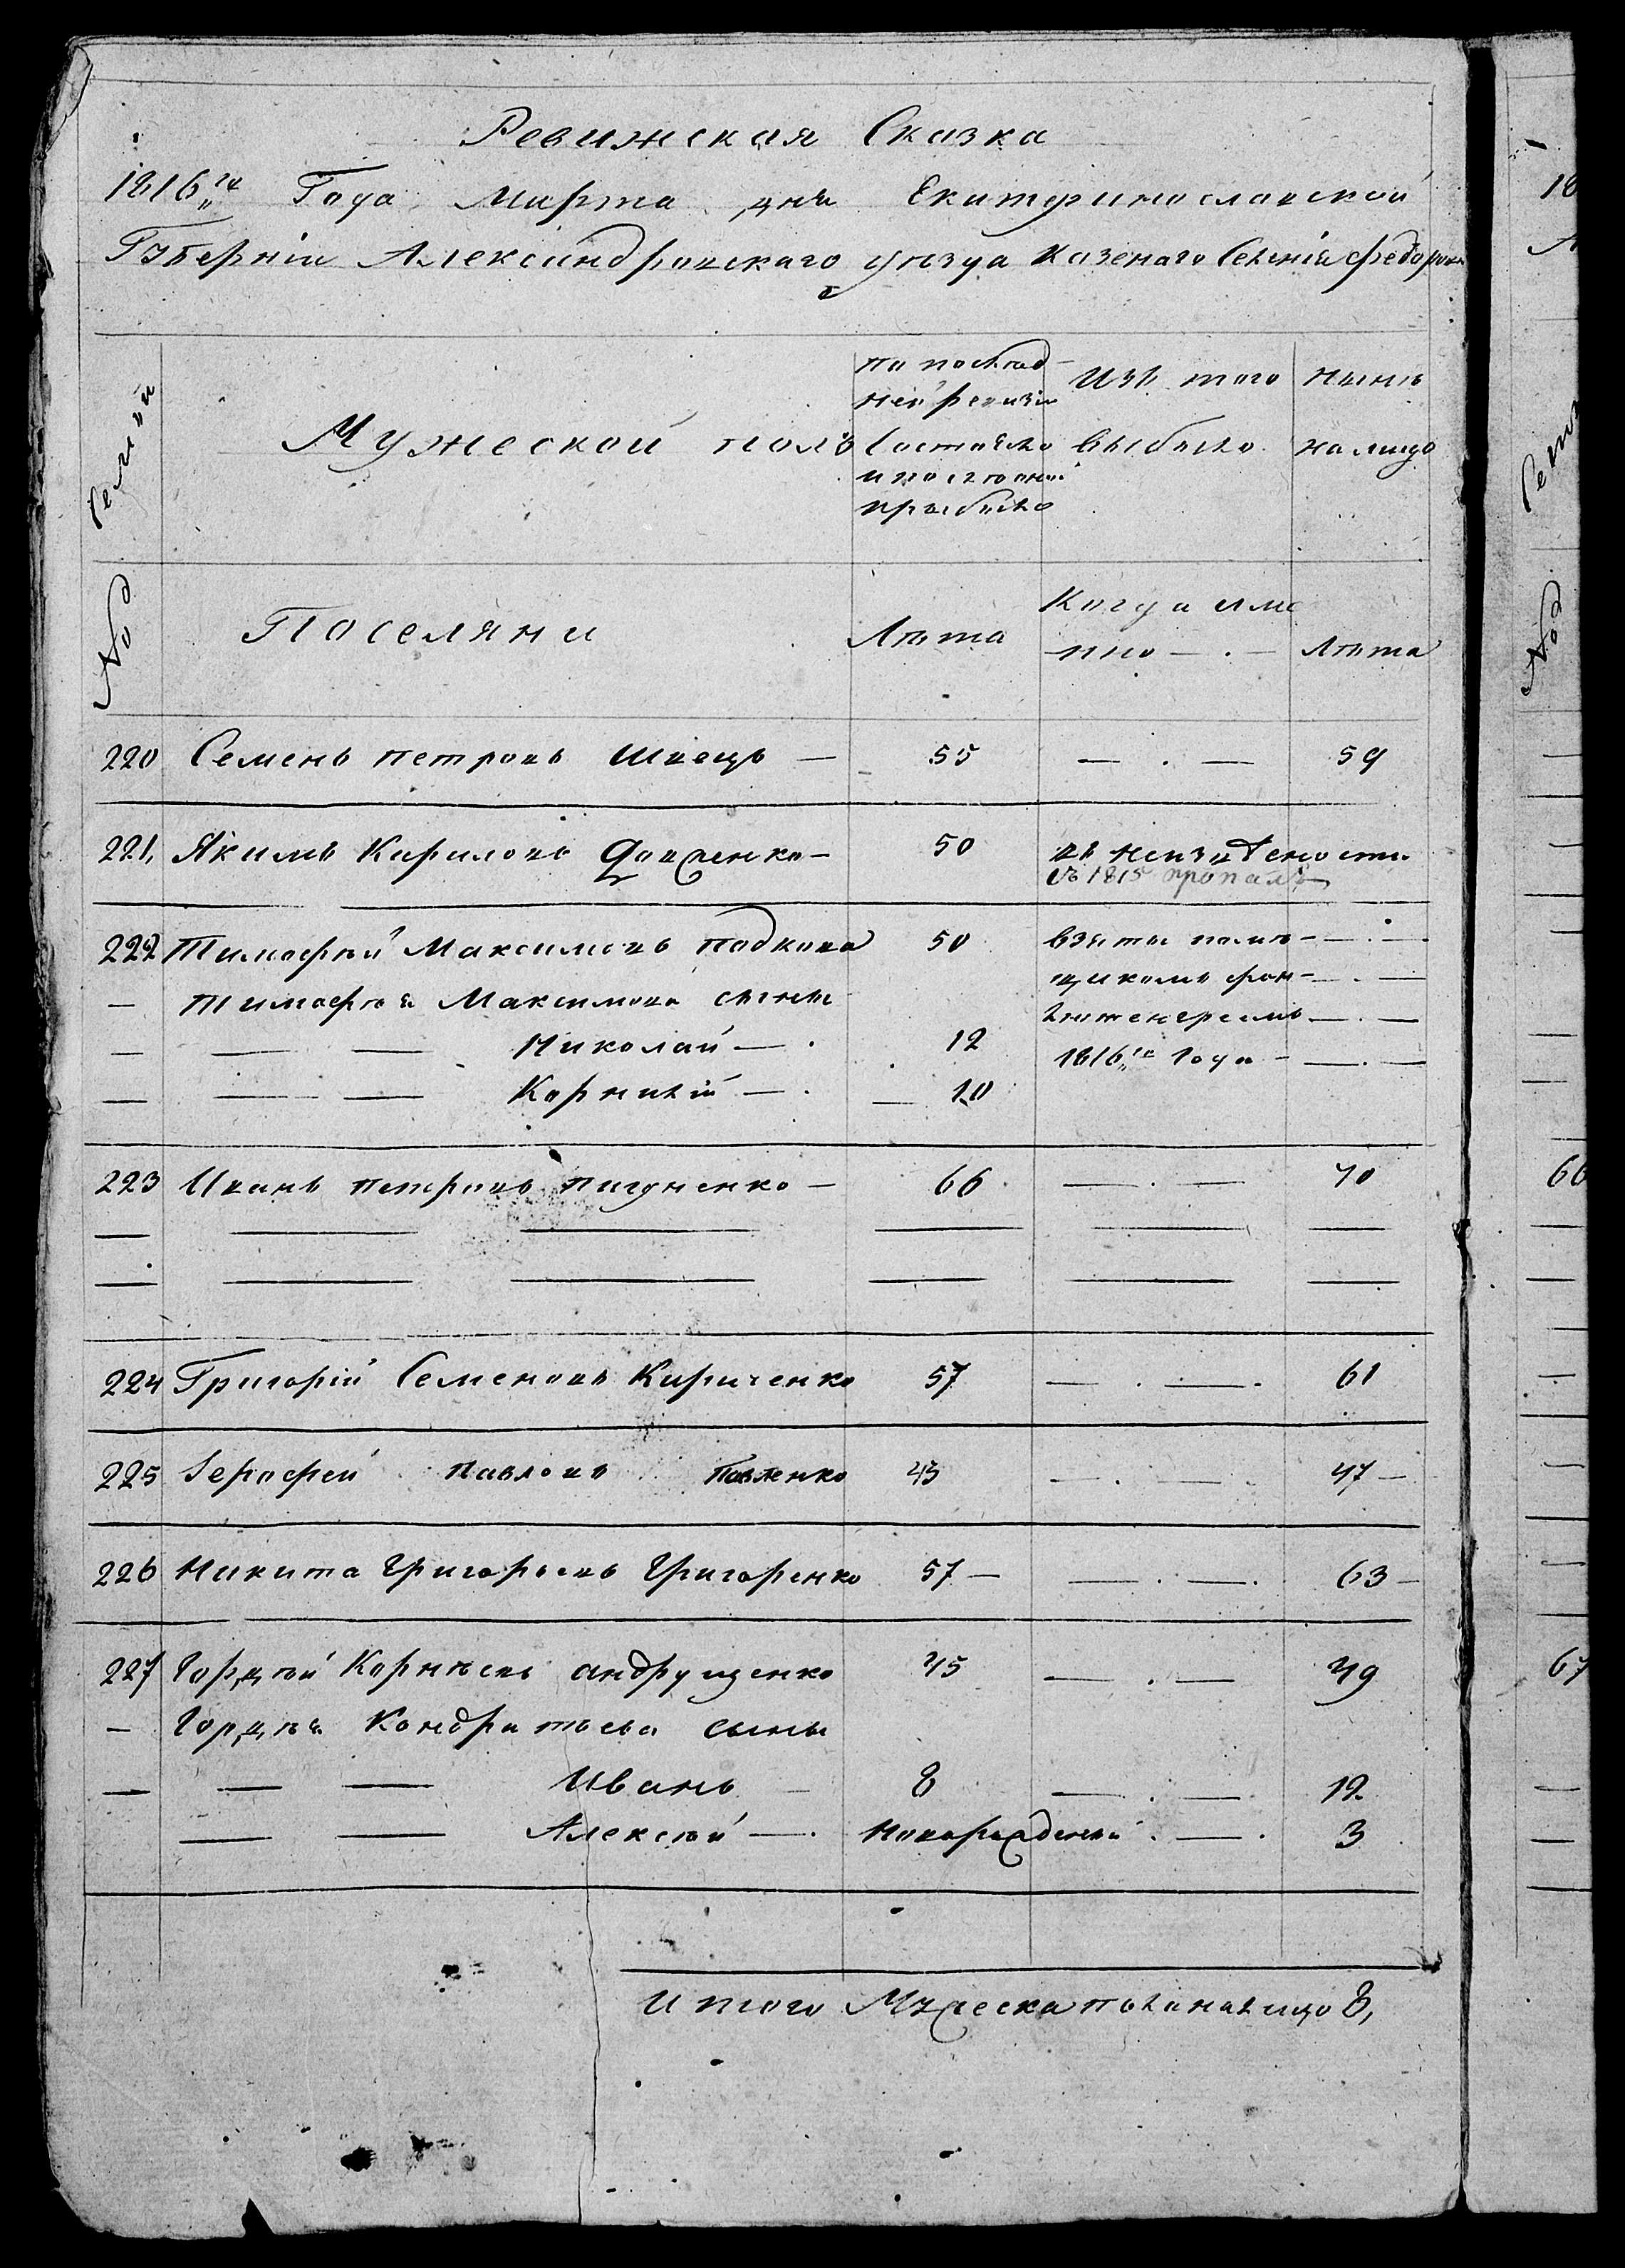 Ревижская Сказка
1816го Года Марта дня Екатеринославской
Губерніи Александровскаго уѣзда Казенаго Селенія Федоровк
Мужеской полъ
по послѣд-
ней ревизіи
Состояло
и после оной
прибыло
Изъ того
выбыло
нынѣ
на лицо
№
Поселяни
Лѣта
Когда име
нно — . —
Лѣта
220 Семенъ петровъ Швецъ — 55 — . — 59
221, Якимъ Кириловъ Довженко — 50 въ неизвѣсности
съ 1815 пропалъ —
222 Тимофѣй Максимовъ подкова 50 взяты помѣ- — . —
— Тимофѣя Максимова сыны щикомъ фон- — . —
— — — Николай — . 12 1816го Года — — . —
— — — Корнилій — . — 10
223 Иванъ петровъ пигуненко — 66 — . — 70
224 Григорій Семеновъ Кириченко 57 — . — . 61
225 Ерофей Павловъ Павленко 43 — . — . 47 —
226 Никита Григорьевъ Григоренко 57 — — . — . 63 —
227 Гордѣй Корнѣевъ андрущенко 45 — . — 49
— Гордѣя Кондратьева сыны
— — — Иванъ — 8 — . — 12
— — Алексѣй — . новорожденый . — . 3
Итого Мужеска пола налицо 8,